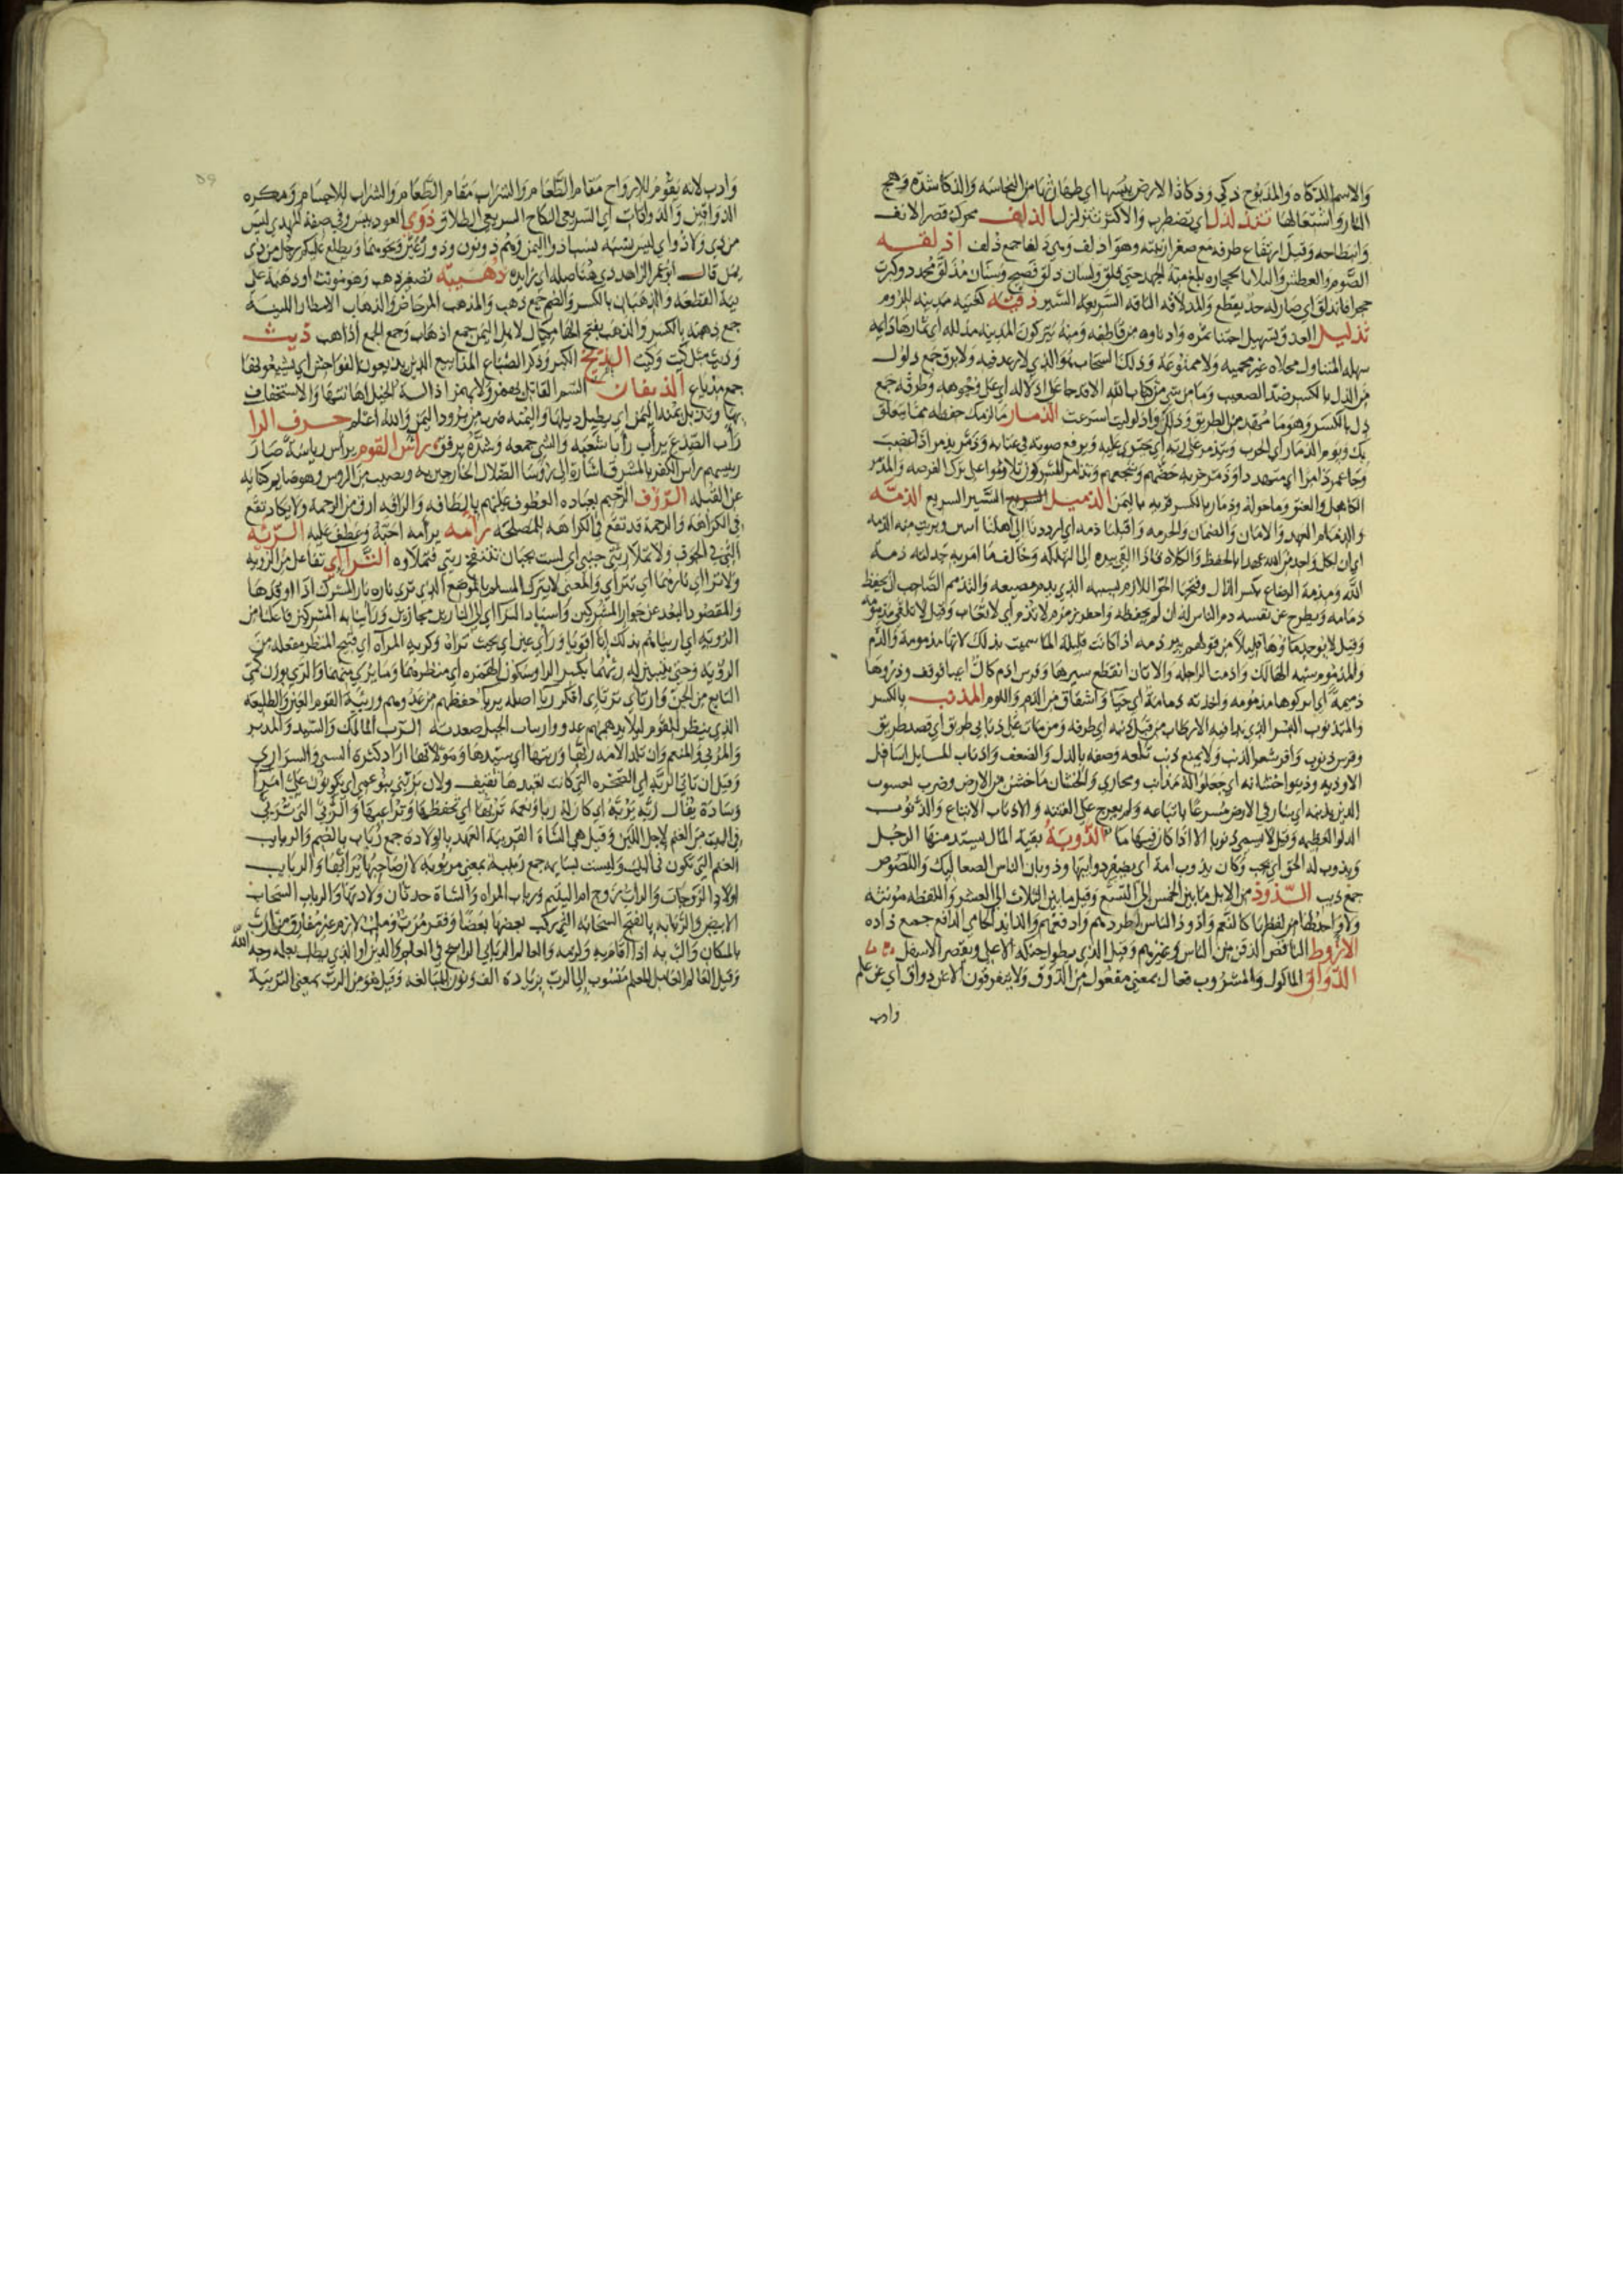 والاسم الذكاه والمذبوح ذكي وذكاة الارض يبسها اي طهارتها من النجاسه والذكا شدة وهج
النار واشتعالها تتذلذل اي تضطرب والاكثر تتزلزل الذلف محركة قصر الانف
وانبطاحه وقيل ارتفاع طرفه مع صغر ارنبته وهو اذلف وهي ذلفا جمع ذلف اذلقه
الصوم والعطش والبلا بالحجارة بلغ منه الجهد حتى قلق ولسان ذلق فصيح وسنان مذلق محدد وكسرت
حجرا فانذلق اي صار له حد يقطع والمذلاقة الناقة السريعة السير
تذليل العذوق تسهيل اجتنا ثمره وادناوه من قاطفه ومنه يتركون المدينه مذللة اي ثمارها دانيه
سهلة المتناول مخلاه غير محمية ولا ممنوعة وذلل السحاب هو الذي لا رعد فيه ولا برق جمع ذلول
من الذل بالكسر ضد الصعب وما من شي من كتاب الله الا قد جا على اذلاله اي على وجوهه وطرقه جمع
ذل بالكسر وهو ما مهد من الطريق وذلل واذلوليت اسرعت الذمار ما لزمك حفظه مما يتعلق
بك ويوم الذمار اي الحرب ويتذمر على ربه اي يجتري عليه ويرفع صوته في عتابه وذمر يذمر اذا غضب
الكاهل والعنق وما حوله وذمار بالكسر قرية باليمن الذميل السير السريع الذمة
والذمام العهد والامان والضمان والحرمه واقلبنا بذمه اي ارددنا الى اهلنا امنين وبريت منه الذمه
اي ان لكل واحد من الله عهدا بالحفظ والكلاه فاذا القى بيده الى التهلكة وخالف ما امر به خذلته ذمة
الله ومذمة الرضاع بكسر الذال وفتحها الحق اللازم بسببه
ذمامه ويطرح عن نفسه ذم الناس له ان لم يحفظه
وقيل لا يوجد ماوها قليلا من قولهم بير ذمه اذا كانت قليلة الما سميت بذلك لانها مذمومة والذم
والمذموم شبه الهالك واذمت الراحله والاتان انقطع سيرها وفرس اذم كال اعيا فوقف وذروها
ذميمة اي اتركوها مذمومه واخذته ذمامة اي حيا واشفاق من الذم واللوم المذنب بالكسر
والمتذنوب البسر الذي بدا فيه الارطاب من قبل ذنبه اي طرفه ومن مات على ذنابي طريق اي قصد طريق
وفرس ذنوب وافر شعر الذنب ولا يمنع ذنب تلعة وصفه بالذل والضعف واذناب المسايل اسافل
الاوديه وذنبوا خشانه اي جعلوا له مذانب ومجاري والخشان ما خشن من الارض وضرب يعسوب
الدين بذنبه اي سار في الارض مسرعا باتباعه ولم يعرج على الفتنه والاذناب الاتباع والذنوب
الدلو العظيمه وقيل لا تسمى ذنوبا الا اذا كان فيها ما الذوبة بقية المال يستذيبها الرجل
ويذوب له الحق اي يجب وكان يذوب امه اي يضفر ذوايبها وذوبان الناس الصعاليك واللصوص
جمع ذيب الذود من الابل ما بين الخمس الى التسع وقيل ما بين الثلاث الى العشر واللفظه مونثه
ولا واحد لها من لفظها كالنعم واذود الناس اطردهم وادفعهم والذايد الحامي الدافع جمع ذاده
الاذوط الناقص الذقن من الناس وغيرهم وقيل الذي يطول حنكه الاعلى ويقصر الاسفل
الذواق الماكول والمشروب فعال بمعنى مفعول من الذوق ولا يتفرقون الا عن ذواق اي عن علم
وادب
وادب لانه يقوم للارواح مقام الطعام والشراب مقام الطعام والشراب للاجسام ومكره
الذواقين والذواقات اي السريعي النكاح السريعي الطلاق ذوى العود يبس وفي صفة المهدي ليس
من ذي ولا ذو اي ليس نسبه نسب اذوا اليمن وهم ذو نون وذو رعين ونحوهما ويطلع عليكم رجل من ذي
يمن قال ابو عمر الزاهد ذي هنا صله اي زايده ذهيبة تصغير ذهب وهو مونث او ذهبة على
نية القطعه والذهبان بالكسر والضم جمع ذهب والمذهب المرحاض والذهاب الامطار اللينة
جمع ذهبة بالكسر والذهب بفتح الها مكيال لاهل اليمن جمع اذهاب وجمع الجمع اذاهب ذيت
وذيت مثل كيت وكيت الذيخ الكبر وذكر الضباع المذاييع الذين يذيعون الفواحش اي يشيعونها
جمع مذياع الذيفان السم القاتل يهمز ولا يهمز اذالة الخيل اهانتها والاستخفاف
بها ويذيل يمنة اليمن اي يطيل ذيلها واليمنه ضرب من برود اليمن والله اعلم حرف الرا
راب الصدع يراب رابا شعبه والشي جمعه وشده برفق راس القوم يراس رياسة صار
رييسهم راس الكفر بالمشرق اشارة الى روسا الضلال الخارجين به ويصيب من الروس وهو صايم كناية
عن القبلة الروف الرحيم بعباده العطوف عليهم بالطافه والرافه ارق من الرحمة ولا تكاد تقع
في الكراهة والرحمة قد تقع في الكراهة للمصلحة رامه يرامه احبه وعطف عليه الرئة
التي في الجوف ولا تملا رئتي جنبي اي لست بجبان تنتفخ رئتي فتملاوه الترااي تفاعل من الرويه
ولا تراا اي ناراهما اي تتراي والمعنى لا يترك المسلم بالموضع الذي ترى ناره نار المشرك اذا اوقدها
والمقصود البعد عن جوار المشركين واسناد الترااي الى النارين مجاز
الرويه اي اريناهم بذلك انا اقويا وراي عين اي بحيث تراه وكريه المراة اي قبيح المنظر مفعلة من
الروية وحتى يتبين له رئيهما بكسر الرا وسكون الهمزه اي منظرهما وما يرى منهما والرئي بوزن كمي
التابع من الجن وارتاى يرتاي افتكر ربا اصله يربا حفظهم من عدوهم وربيئة القوم العين والطليعة
الذي ينظر للقوم ليلا يدهمهم عدو وارتبات الجبل صعدته الرب المالك والسيد والمدبر
والمربي والمنعم وان تلد الامه ربها وربتها اي سيدها ومولاتها اراد كثرة السبي والسراري
وقيل ان تاتي الربة اي الصخره التي كانت تعبدها ثقيف ولان يربني بنو عمي اي يكونون علي امرا
وسادة يقال ربه يربه اي كان له ربا ونعمة تربها اي تحفظها وتراعيها والربى التي تربى
في البيت من الغنم لاجل اللبن وقيل هي الشاة القريبة العهد بالولادة جمع رباب بالضم والربايب
الغنم التي تكون في البيت وليست بسايمه جمع ربيبه بمعنى مربوبة لان صاحبها يربها والربايب
اولاد الزوجات والراب زوج ام اليتيم ورباب المراه والشاة حدثان ولادتها والرباب السحاب
الابيض والربابه بالفتح السحابه التي يركب بعضها بعضا وفقر مرب وملب لازم غير مفارق من ارب
بالمكان والب به اذا اقام به ولزمه والعالم الرباني الراسخ في العلم والدين او الذي يطلب بعلمه وجه الله
وقيل العالم العامل المعلم منسوب الى الرب بزيادة الف ونون للمبالغه وقيل هو من الرب بمعنى التربية